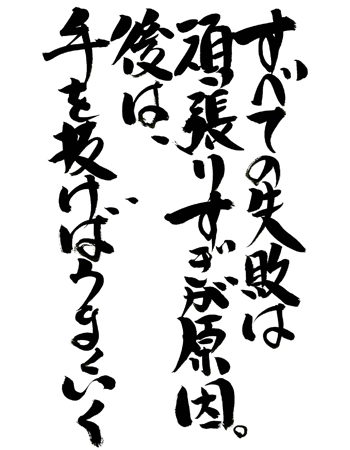 すべての失敗は
頑張りすぎが原因。
後は、
手を抜けばうまくいく